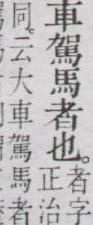 車駕馬者也。
者字
正治
同。云大車駕馬者